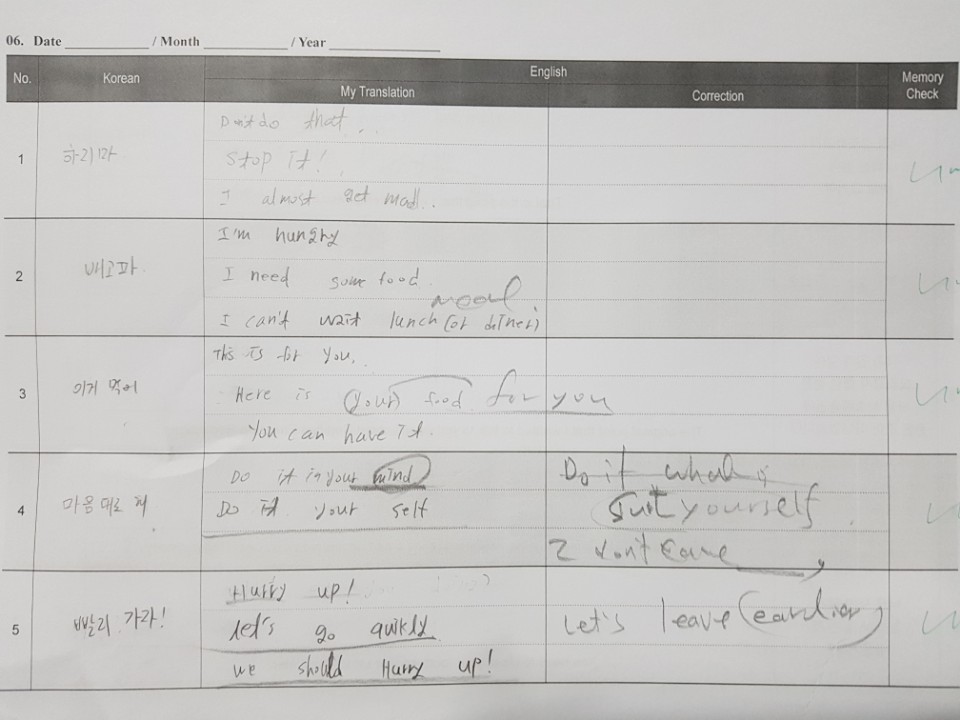 06. Date / Month / Year
No. Korean English Memory Check
My Translation Correction
1 하지마
Don't do that..
Stop it!
I almost get mad..
2 배고파.
I'm hungry
I need some food.
meal
I can't wait lunch (or dinner)
3 이거 먹어
This is for you.
Here is (your) food for you
You can have it.
4 마음대로 해
Do it in your mind
Do it your self
Do it what
Suit yourself
I don't care
5 빨리 가자!
Hurry up!
let's go quikly
we should Hurry up!
Let's leave (eardier)